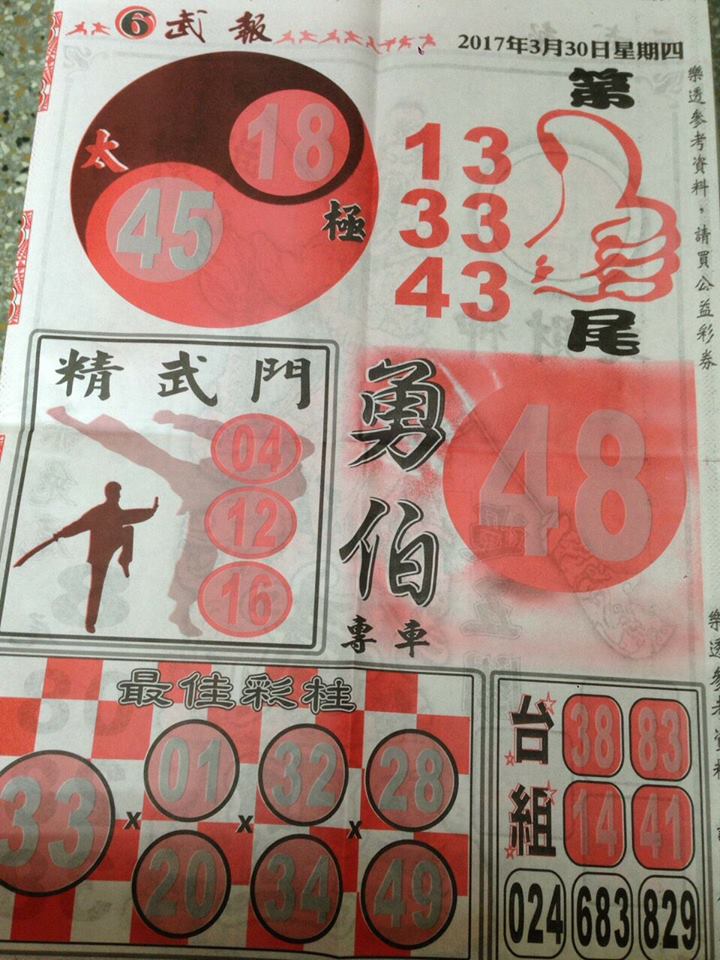 6 武報
2017年3月30日星期四
樂透參考資料，請買公益彩券
太 18
45 極
第
13
33
43
尾
精武門
04
12
16
勇伯
專車
48
最佳彩柱
33 x 01 x 32 x 28
20 34 49
台組
38 83
14 41
024 683 829